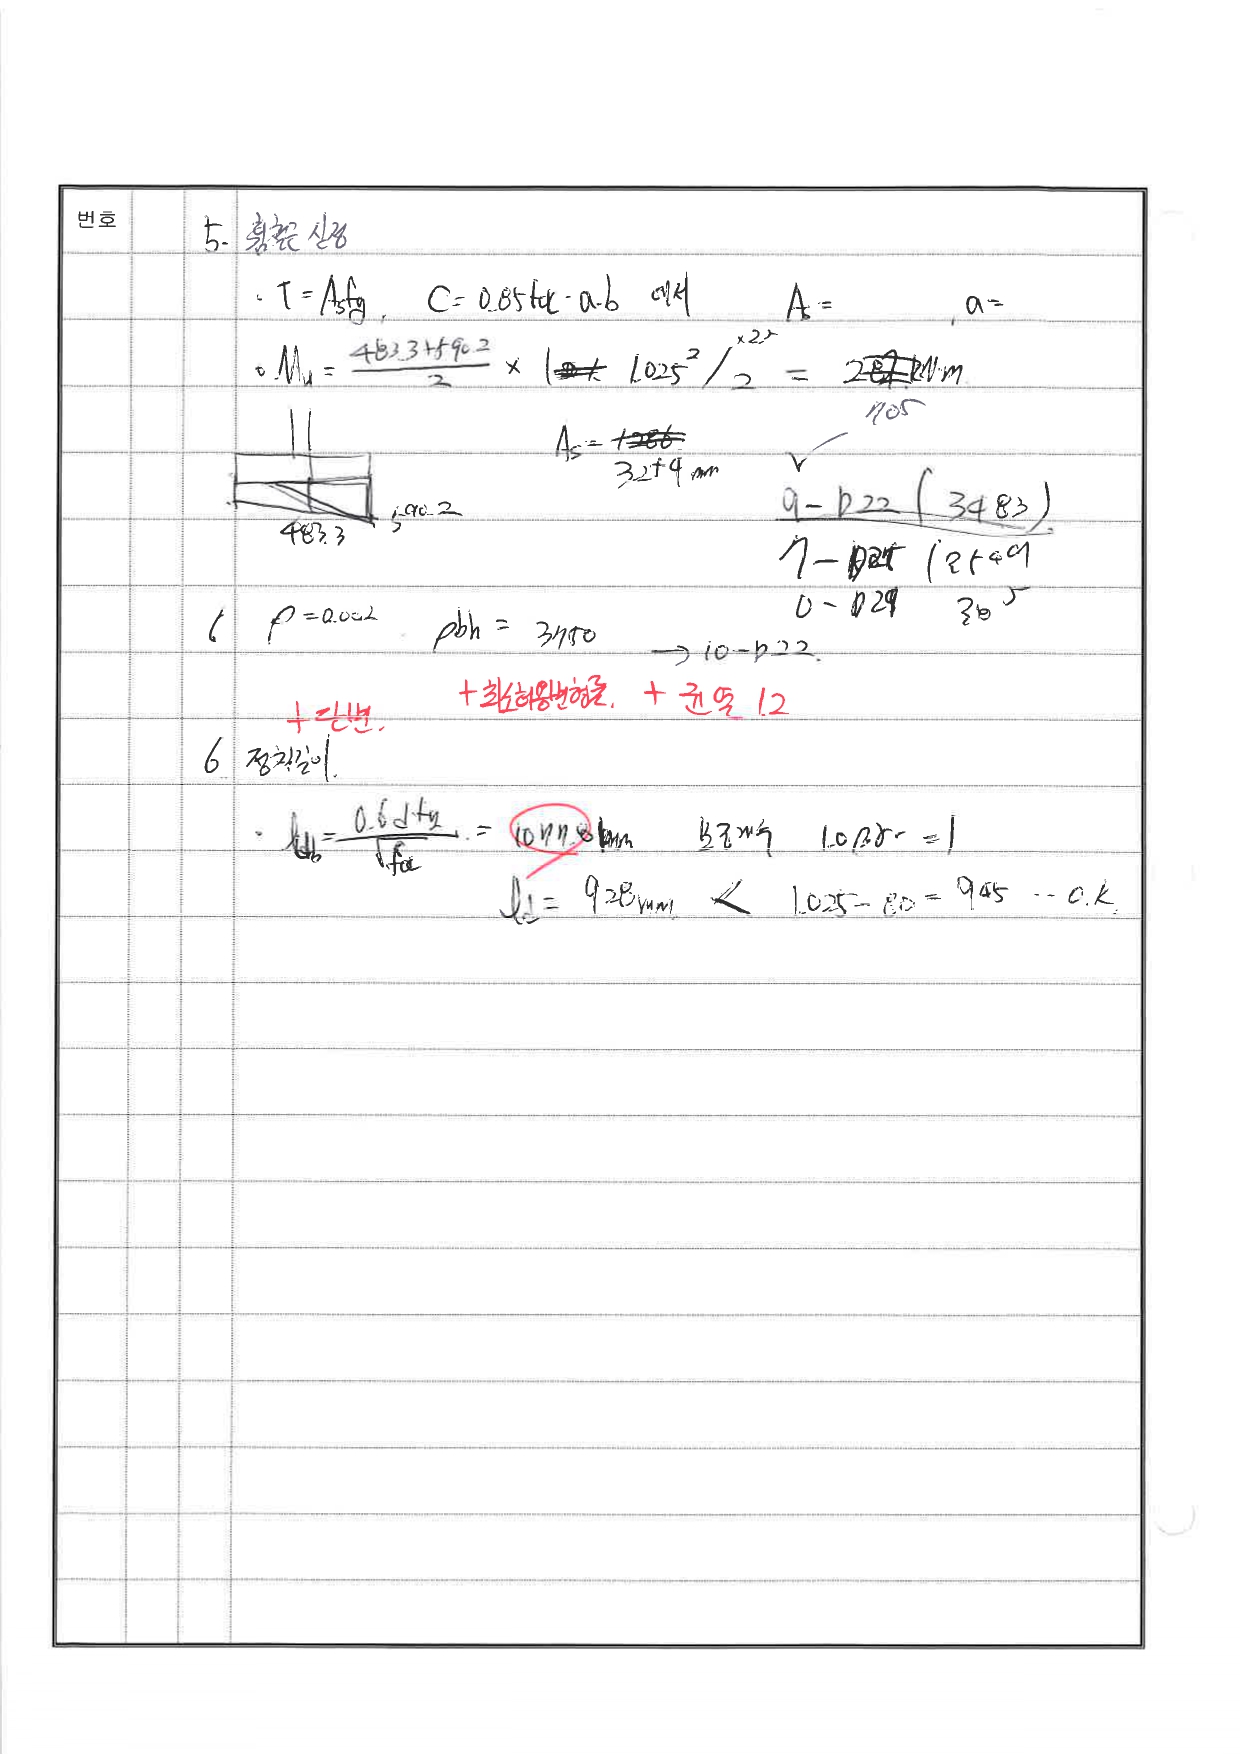 번호
5. 휨철근 산정
· T = Asfy, C = 0.85fck·a·b 에서 As = , a =
· Mu = (483.3+590.2)/2 × 1.025²/2 ×2.5 = kN·m
705
As = 3279 mm
9-D22 (3483)
590.2
483.3
7-D25 (3549
6-D29 385
ρ=0.002 ρbh = 3750 → 10-D22.
+ 단변. + 최소허용변형률. + 균열 1.2
6 정착길이.
· ldb = 0.6dfy/√fck = 1077.8mm 보정계수 =1
ld = 928mm < 1.025-80 = 945 ··· O.K.